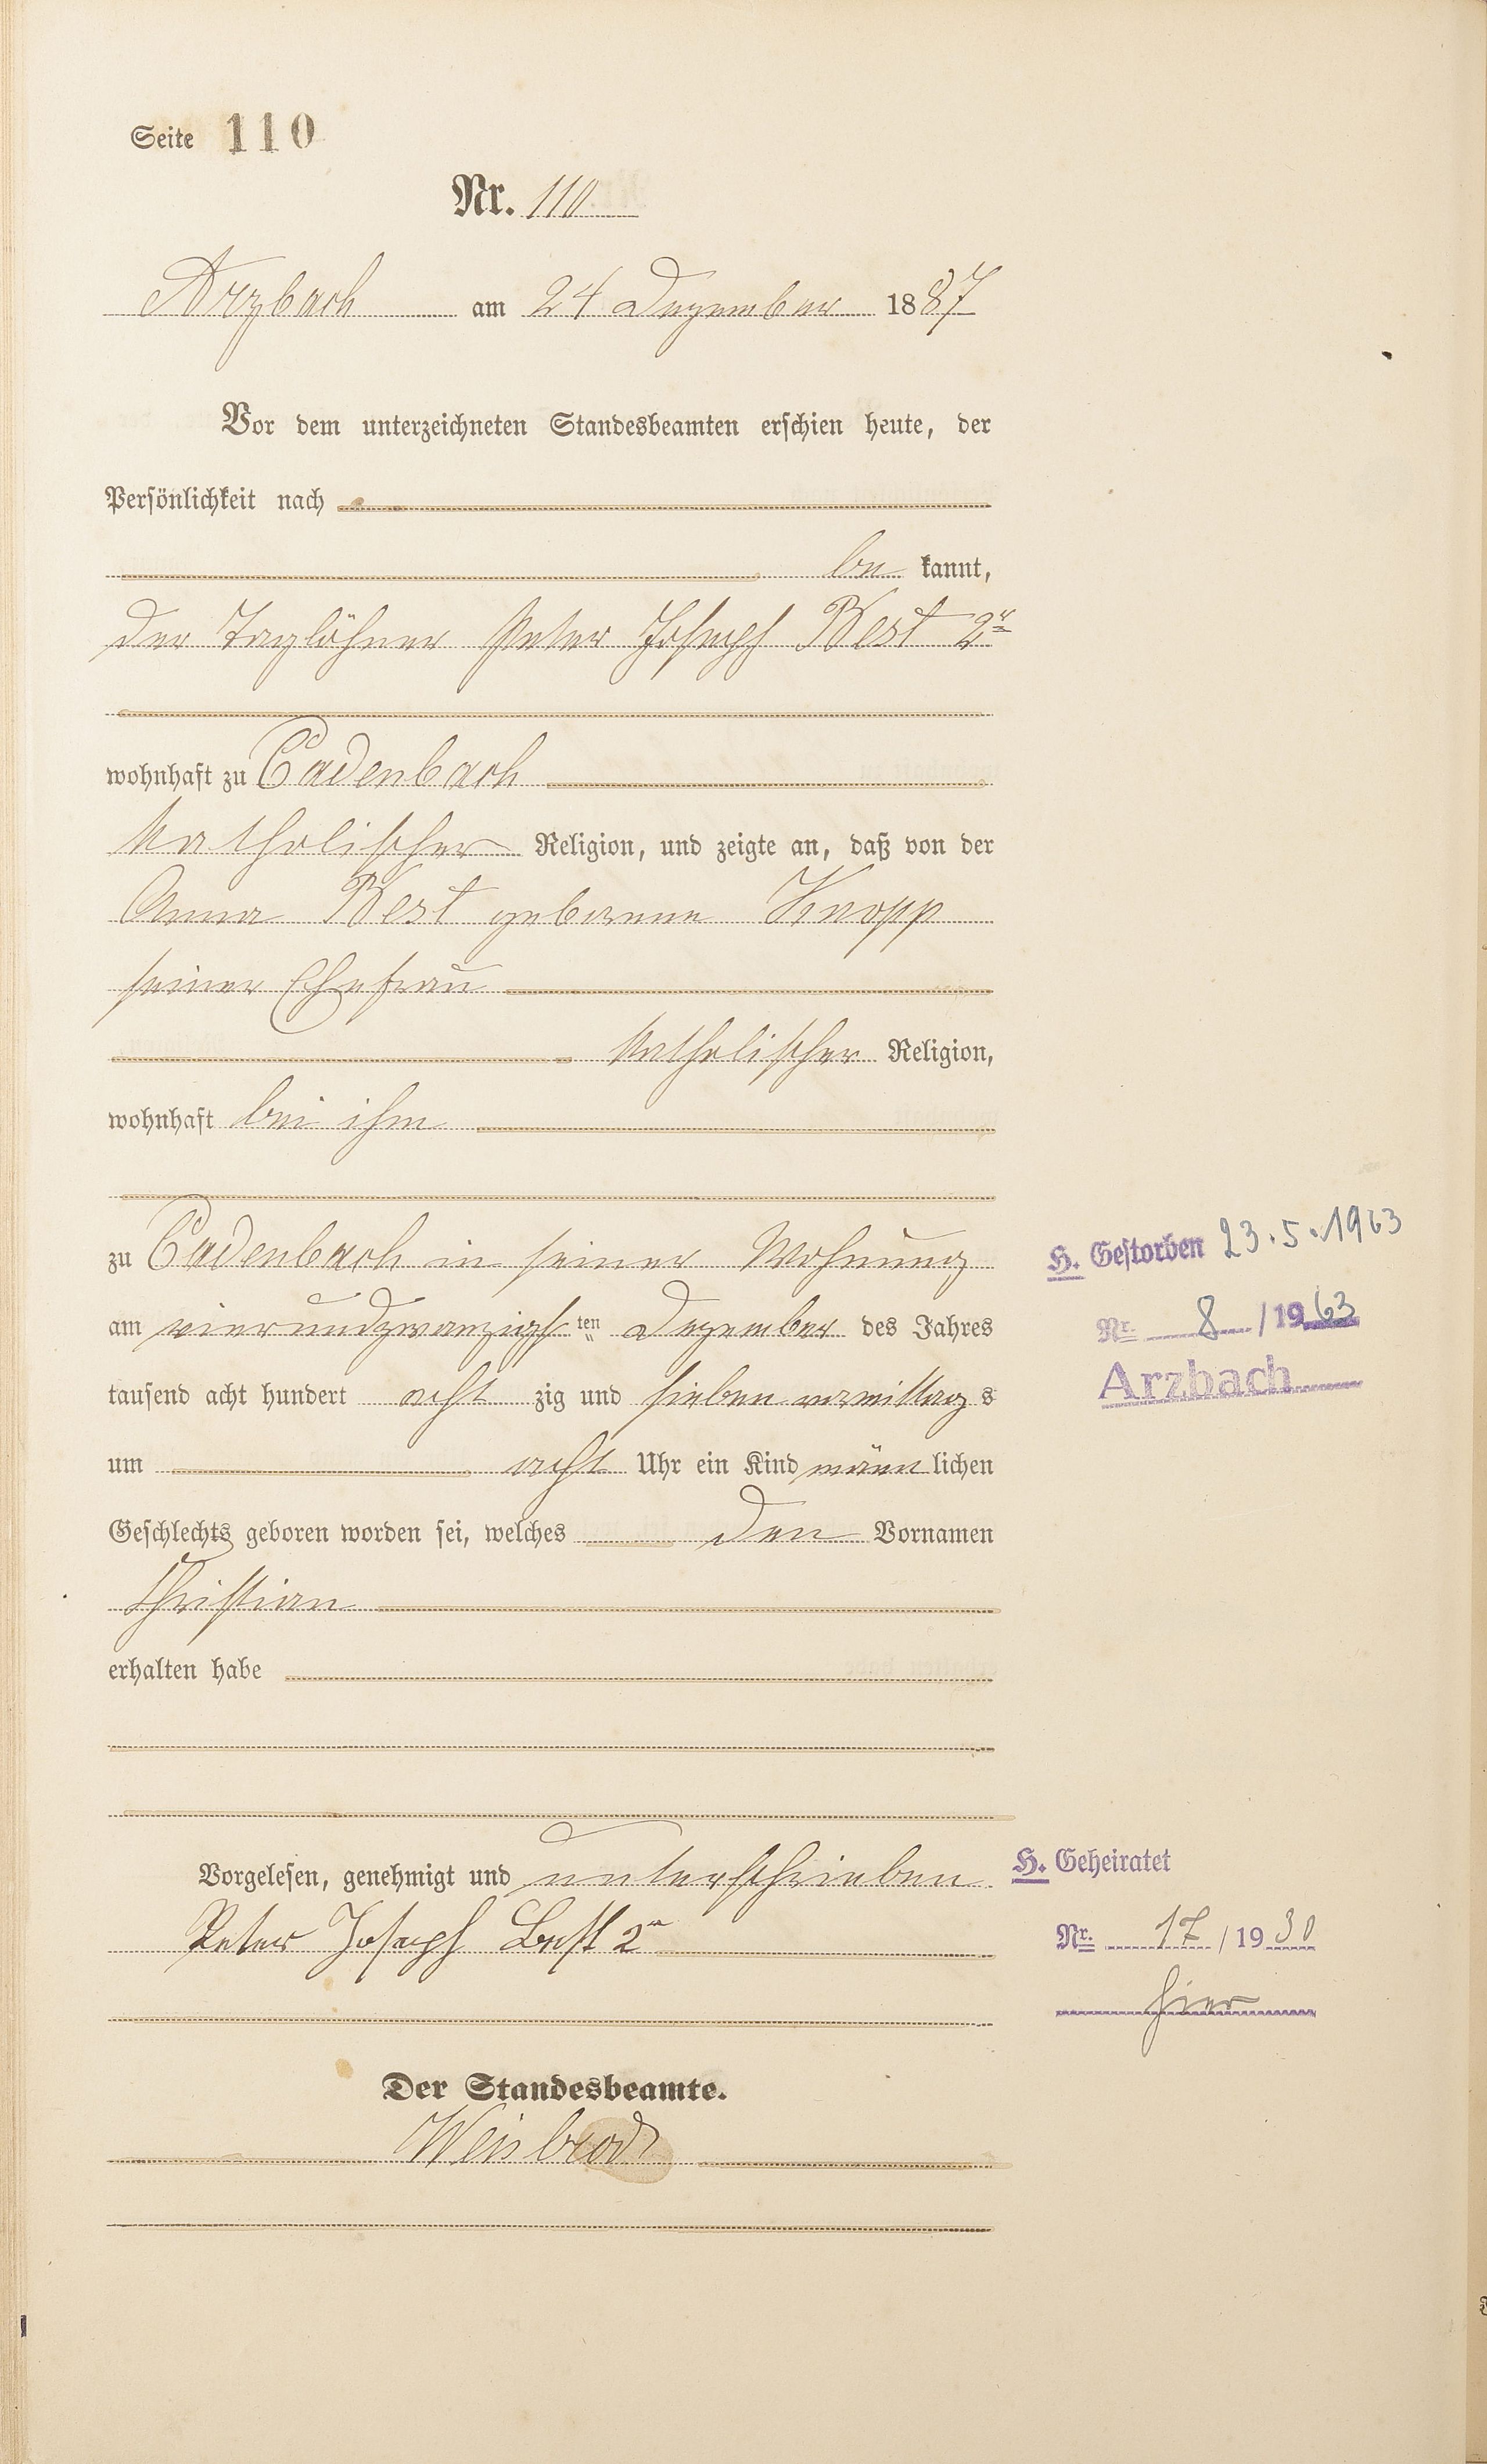 Seite 110
Nr. 110
Arzbach am 24 Dezember 1887
Vor dem unterzeichneten Standesbeamten erschien heute, der
Persönlichkeit nach
be kannt,
der Taglöhner Peter Joseph Best 2r
wohnhaft zu Cadenbach
katholischer Religion, und zeigte an, daß von der
Anna Best geborene Knopp
seiner Ehefrau
katholischer Religion,
wohnhaft bei ihm
zu Cadenbach in seiner Wohnung
am vierundzwanzigsten Dezember des Jahres
tausend acht hundert acht zig und sieben vormittag s
um acht Uhr ein Kind männ lichen
Geschlechts geboren worden sei, welches den Vornamen
Christian
erhalten habe
Vorgelesen, genehmigt und unterschrieben
Peter Joseph Best 2r
Der Standesbeamte.
Weisbrod
H. Gestorben 23.5.1963
Nr. 8 / 1963
Arzbach
H. Geheiratet
Nr. 17 / 1930
hier